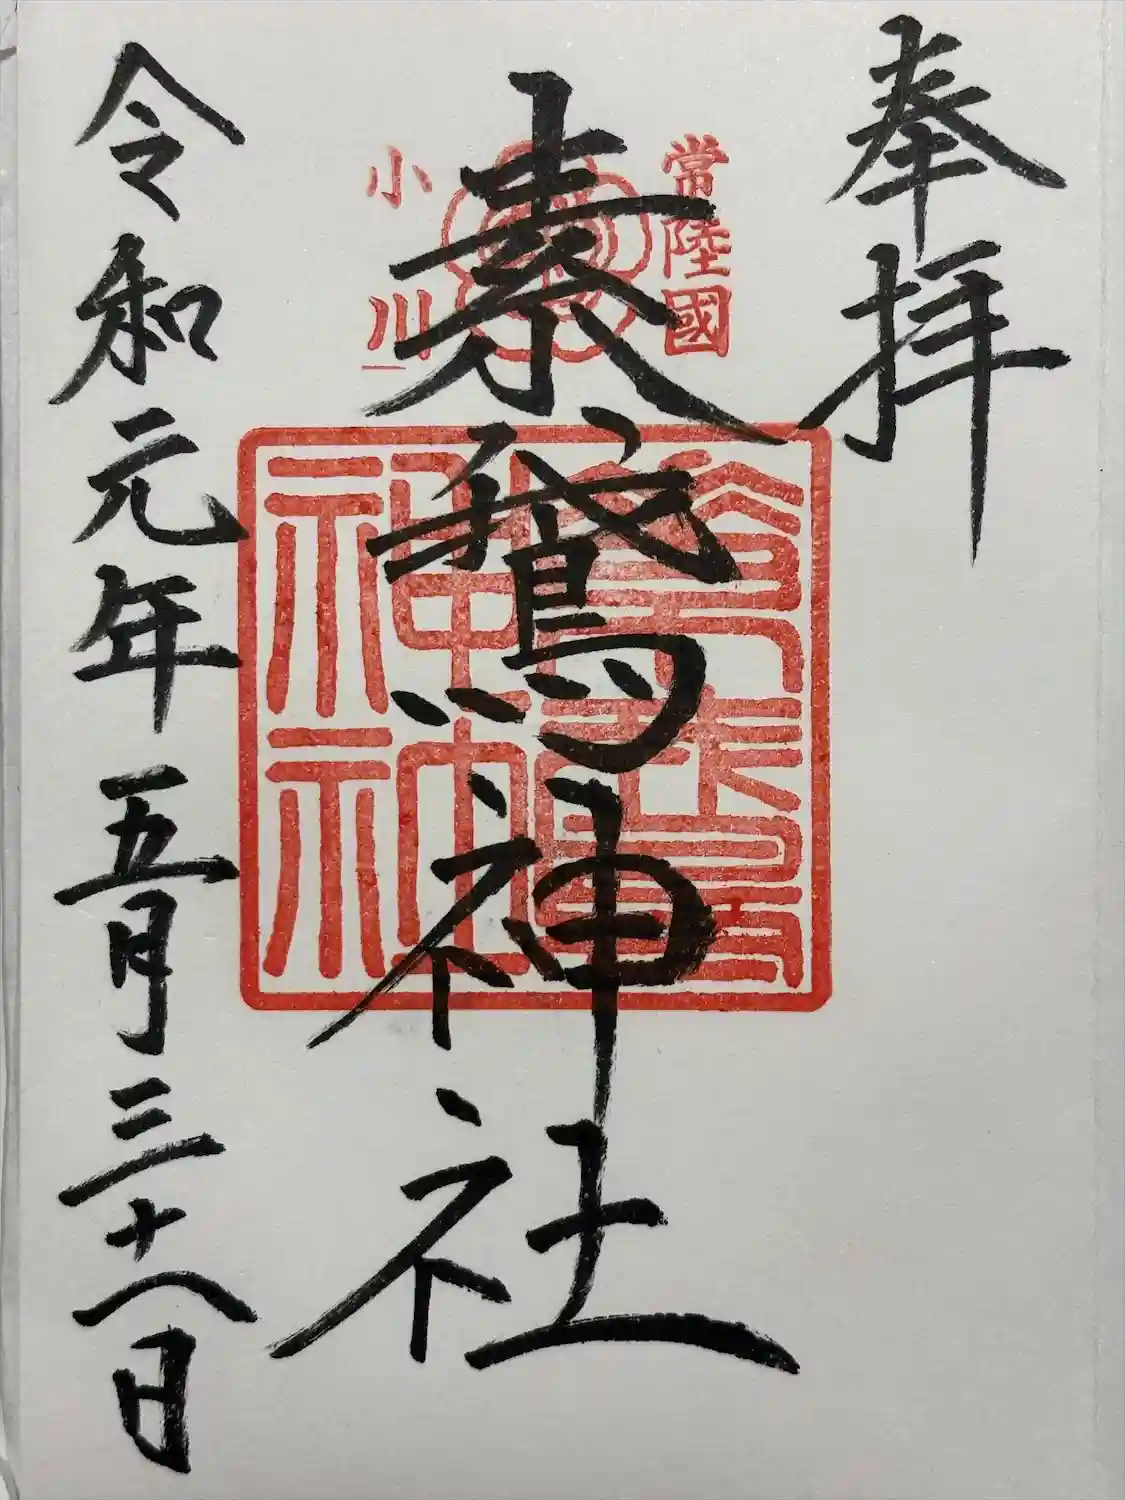 奉拝
常陸國
素鵞神社
小川
神社
令和元年五月三十一日